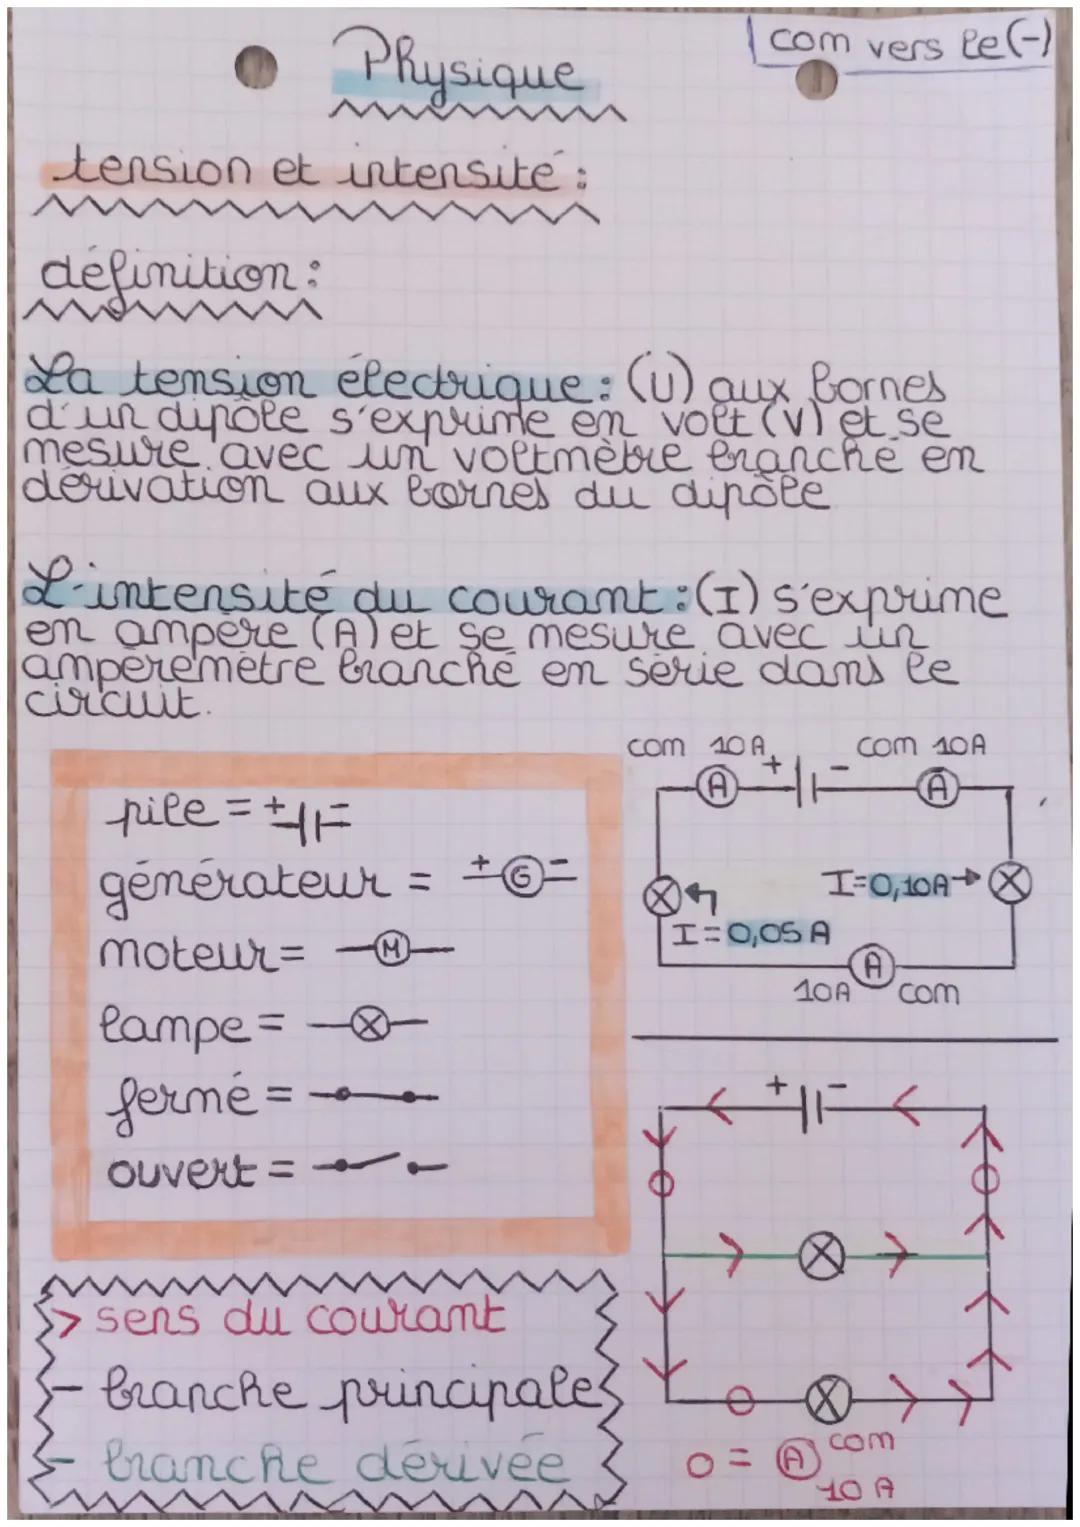 Physique
com vers le (-)
tension et intensité :
définition :
La tension électrique : (U) aux bornes
d'un dipôle s'exprime en volt (V) et se
mesure avec un voltmètre branché en
dérivation aux bornes du dipôle
L'intensité du courant : (I) s'exprime
en ampère (A) et se mesure avec un
ampèremètre branché en série dans le
circuit.
pile = + -
générateur = + G -
moteur = M
lampe =
fermé =
ouvert =
com 10A com 10A
A + - A
I=0,10A
I=0,05A
A
10A com
+ -
> sens du courant
- branche principale
- branche dérivée
O = A com
10 A